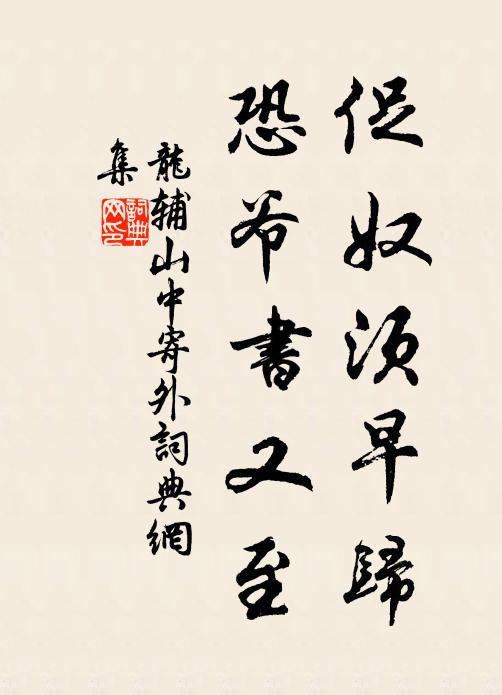 促奴須早歸
恐爷書又至
龍辅山中寄外詞典網
集
詞典网印